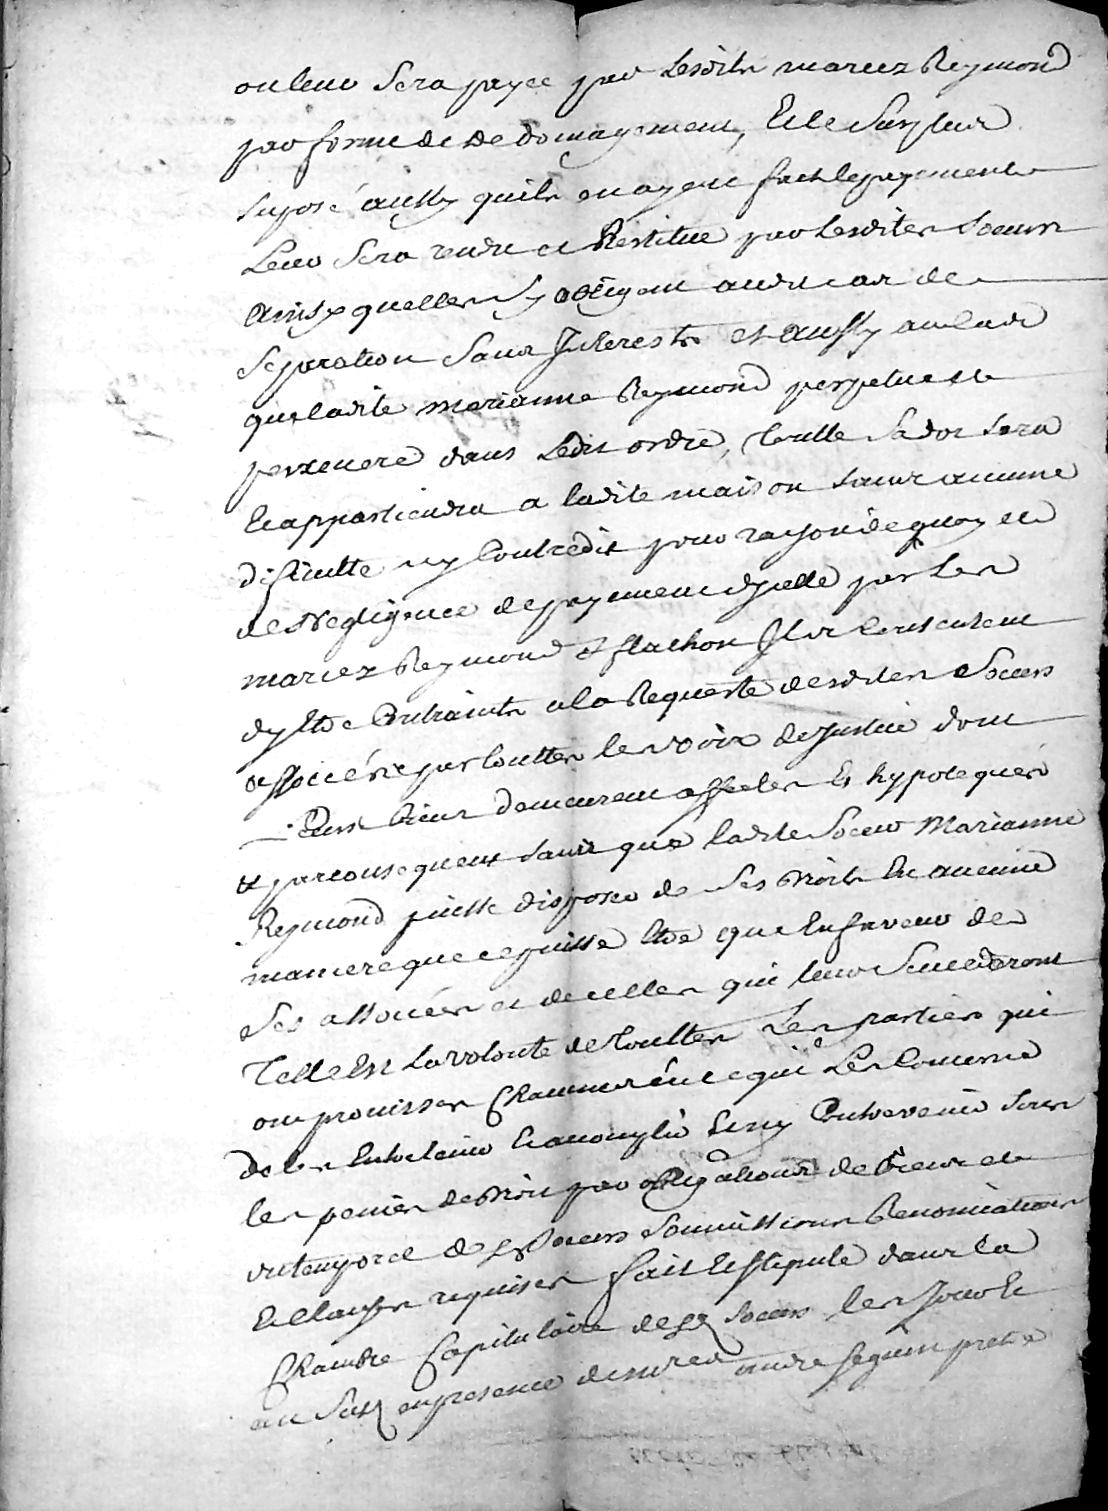 ou leur sera payee par lesdits mariez Reymond
par forme de dedomagement, Et le surplus
suposé aussy quils en ayent fait le payement
leur sera rendu et Restitué par lesdites soeurs
Ainsy quelles sy obligent audit cas de
separation sans Jnterests et aussy au cas
que ladite marianne Reymond perpetue et
persevere dans ledit ordre, toutte sa dot sera
Et appartiendra a ladite maison sans aucune
dificulte ny Contredit pour rayson de quoy et
de Negligence de payement dycelle par les
mariez Reymond et flachon Jls consentent
dy Etre Contraints a la Requeste desdites soeurs
associées par touttes les voyes de justice dont
leurs biens demeurent affectes et hypoteques
et par consequent sans que ladite soeur Marianne
Reymond puisse disposer de ses droits En aucune
maniere que ce puisse Etre que En faveur de
ses associées et de celles qui leur succederont
Telle Est La volonté de touttes les parties qui
ont promis chacune en ce qui les concerne
de les Entretenir Et acomplir sans y Contrevenir sous
les peines de droit par obligations de biens et
du temporel desd soeurs soumissions Renonciations
Et clauses requises fait Et stipulé dans la
Chambre Capitulaire desd soeurs les Jour Et
an susd en presence de mre andre seguin pretre